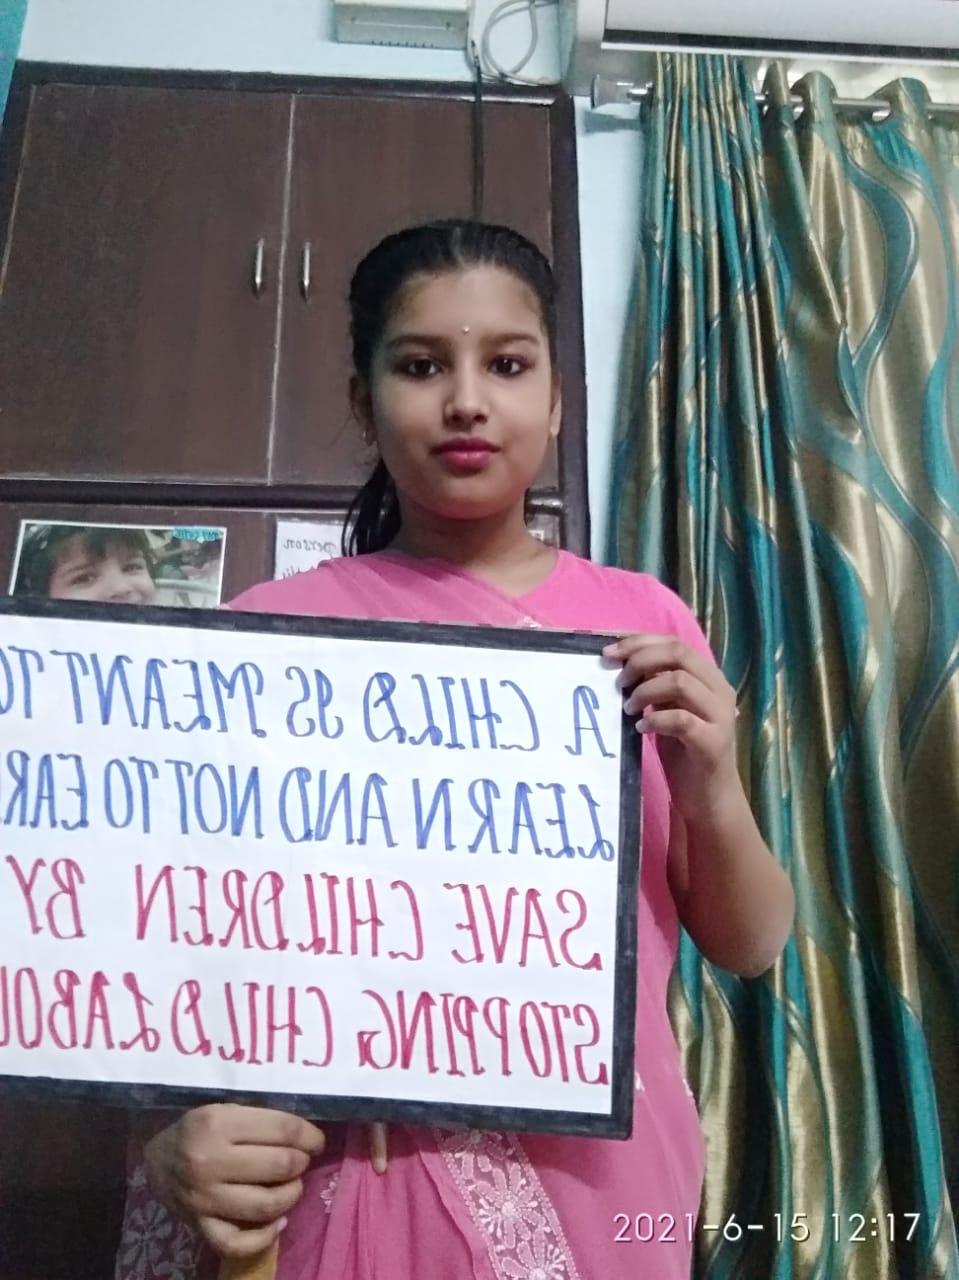 A CHILD IS MEANT TO
LEARN AND NOT TO EAR
SAVE CHILDREN BY
STOPPING CHILD LABOU
person
2021-6-15 12:17